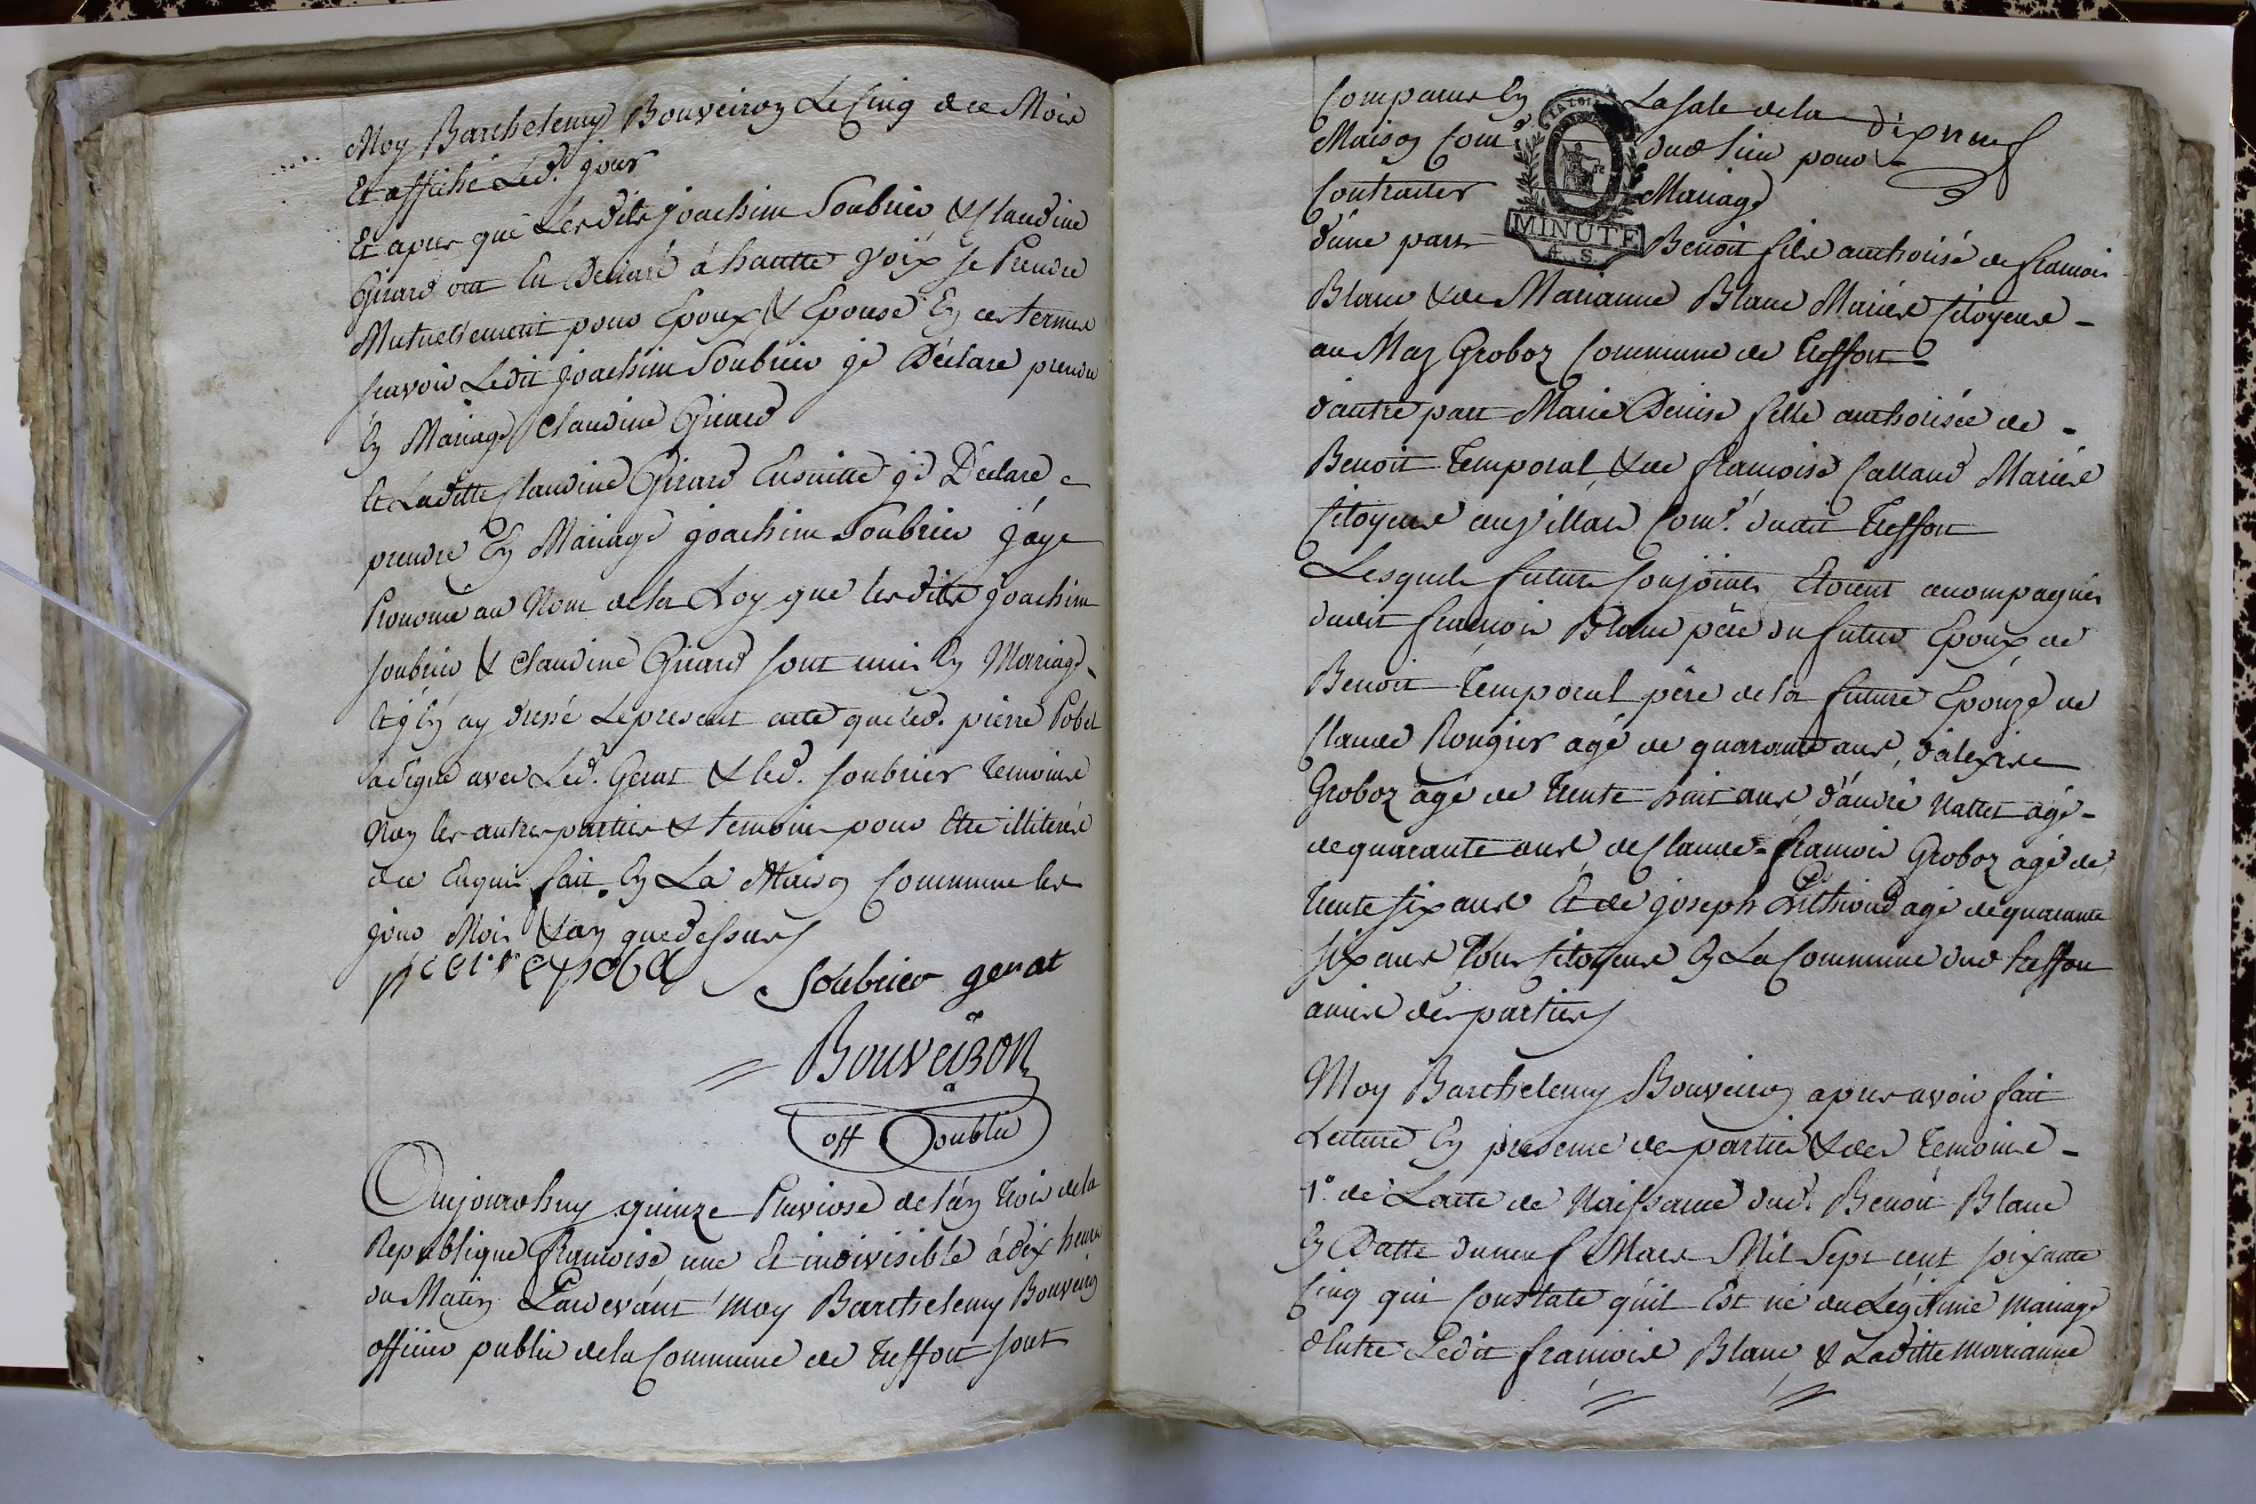 Moy Barthelemy Bouveiron Le Cinq de ce Mois
Et affiché Led.t jour
Et apres que Lesdits joachim Soubrier & Claudine
Girard ont Eu Declaré á hautte voix se Prendre
Mutuellement pour Epoux & Epouse En ces termes
scavoir Ledit joachim Soubrier je Déclare prendre
En Mariage Claudine Girard
Et Laditte Claudine Girard Ensuitte je Déclare
prendre En Mariage joachim Soubrier j'aye
Prononcé au Nom de la Loy que lesdits joachim
soubrier & Claudine Girard sont unis En Mariage -
Et j'En ay dressé Le present acte que led. pierre Pobel
a Signé avec Led. Gerat & led. soubrier temoins
Non les autres parties & temoins pour Etre illiterés
de ce Enquis fait En La Maison Commune les
jour Mois & an que dessus
pierre pobel
soubrier gerat
BOUVEIRON
off Public
Aujourdhuy quinze Pluviose de l'an trois de la
Republique francoise une Et indivisible á dix heures
du Matin Pardevant moy Barthelemy Bouveiron
officier public de la Commune de Treffort sont
dixneuf
Comparus En La Sale de la
Maison Com.e dud lieu pour
Contracter Mariage
LA LOI
MINUTE
4. S.
d'une part Benoit fils authorisé de francois
Blanc & de Marianne Blanc Mariés Citoyens -
au Maz Groboz Commune de Treffort
d'autre part Marie Denise fille authorisée de -
Benoit Temporal & de francoise Calland Mariés
Citoyens au villard Com.e dudit Treffort
Lesquels futurs Conjoints Etoient acompagnés
dudit francois Blanc pére du futur Epoux de
Benoit Temporal pére de la future Epouze de
Claude Rougier agé de quarante ans, d'alexis
Groboz agé de trente huit ans d'andré Nattet agé -
de quarante ans de Claude - francois Groboz agé de
trente six ans Et de joseph agé de quarante
six ans Tous Citoyens En La Commune dud Treffort
amis des parties
Moy Barthelemy Bouveiron apres avoir fait
Lecture En presence des parties & des temoins -
1° de L'acte de Naissance dud. Benoit Blanc
En Datte du neuf Mars Mil Sept cent soixante
Cinq qui Constate qu'il Est né du Légitime mariage
d'Entre Ledit francois Blanc & Laditte marianne